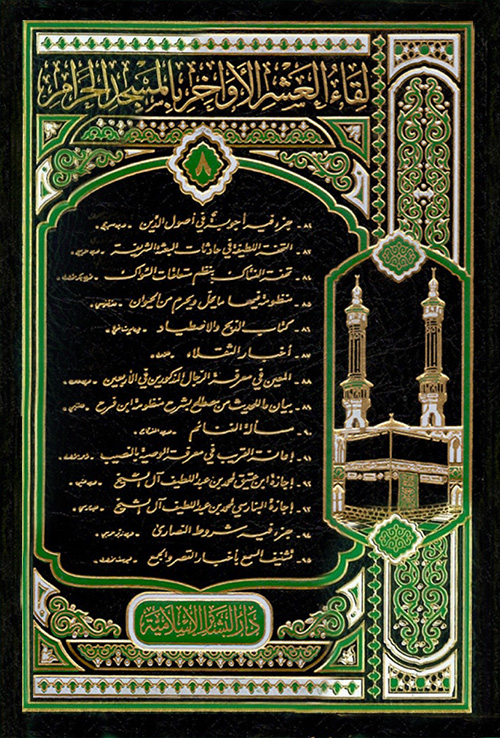 لقاء العشر الأواخر بالمسجد الحرام
٨
٨١ - جزء فيه أجوبة في أصول الدين -
٨٢ - التحفة اللطيفة في حادثات البعثة الشريفة -
٨٤ - تحفة النساك بنظم متعلقات السواك -
٨٥ - منظومة فيما يحل ويحرم من الحيوان -
٨٦ - كتاب الذبح والاصطياد -
٨٧ - أخبار الثقلاء -
٨٨ - المعين في معرفة الرجال المذكورين في الأربعين -
٨٩ - بيان ما للحديث من مصطلح بشرح منظومة ابن فرح -
٩٠ - مسألة الغنائم -
٩١ - إعانة القريب في معرفة الوصية بالنصيب -
٩٢ - إجازة ابن عتيق لمحمد بن عبد اللطيف آل شيخ -
٩٣ - إجازة البنارسي لمحمد بن عبد اللطيف آل شيخ -
٩٤ - جزء فيه شروط النصارى -
٩٥ - تشنيف السمع بأخبار القصر والجمع -
دار البشائر الإسلامية